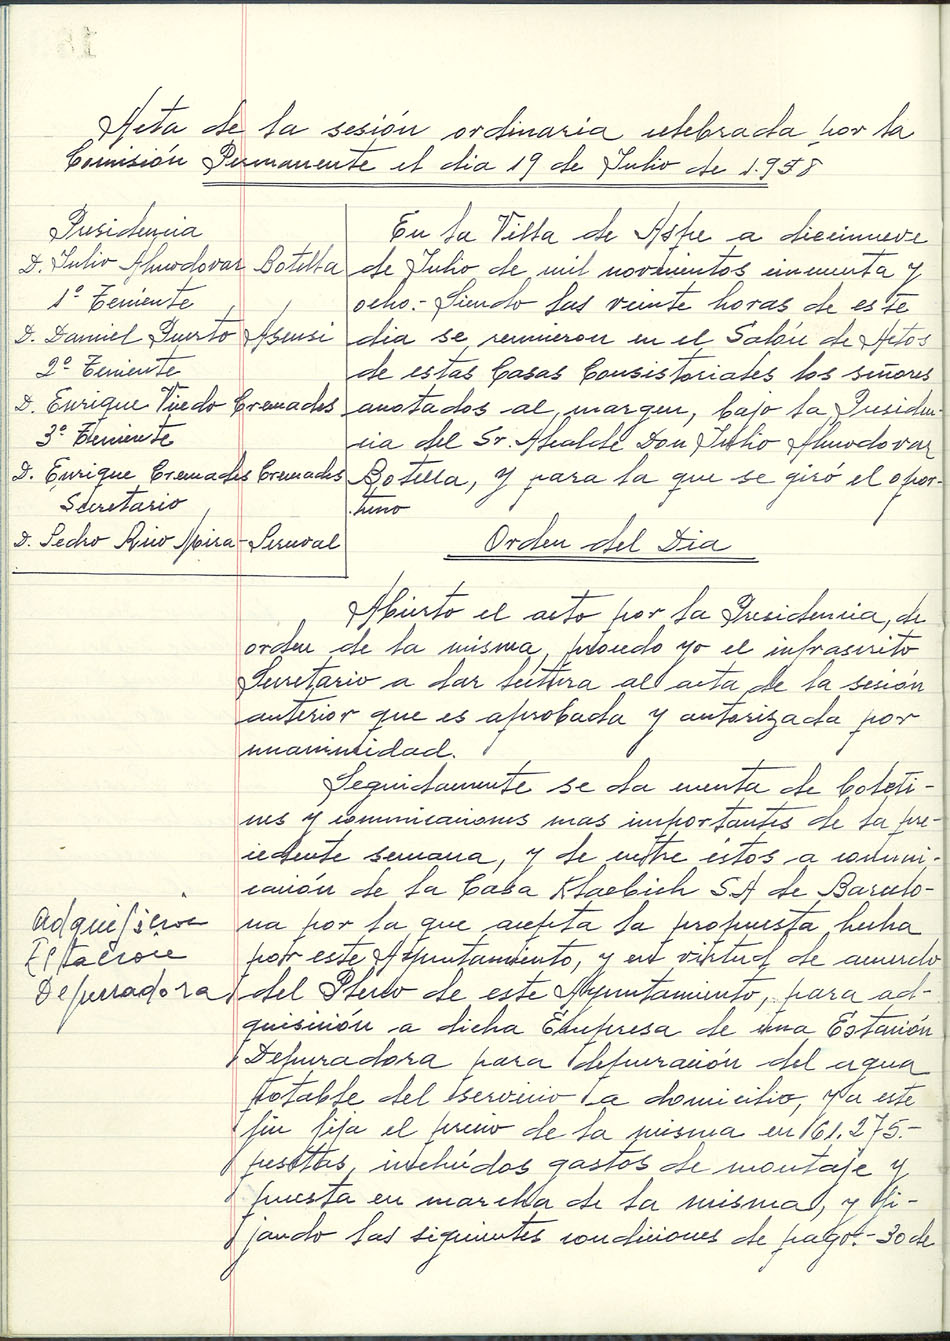 Acta de la sesión ordinaria celebrada por la
Comisión Permanente el dia 19 de Julio de 1.958
Presidencia
D. Julio Almodovar Botella
1º Teniente
D. Daniel Puerto Asensi
2º Teniente
D. Enrique Viedo Cremades
3º Teniente
D. Enrique Cremades Cremades
Secretario
D. Pedro Rico Mira-Perceval
En la Villa de Aspe a diecinueve
de Julio de mil novecientos cincuenta y
ocho.- Siendo las veinte horas de este
dia se reunieron en el Salón de Actos
de estas Casas Consistoriales los señores
anotados al margen, bajo la Presiden-
cia del Sr. Alcalde Don Julio Almodovar
Botella, y para la que se giró el opor-
tuno
Orden del Dia
Abierto el acto por la Presidencia, de
orden de la misma, procedo yo el infrascrito
Secretario a dar lectura al acta de la sesión
anterior que es aprobada y autorizada por
unanimidad.
Seguidamente se da cuenta de boleti-
nes y comunicaciones mas importantes de la pre-
cedente semana, y de entre éstos a comuni-
cación de la Casa Klaebich SA de Barcelo-
na por la que acepta la propuesta hecha
por este Ayuntamiento, y en virtud de acuerdo
del Pleno de este Ayuntamiento, para ad-
quisición a dicha Empresa de una Estación
Depuradora para depuración del agua
potable del servicio a domicilio, y a este
fin fija el precio de la misma en 61.275.-
pesetas, incluídos gastos de montaje y
puesta en marcha de la misma, y fi-
jando las siguientes condiciones de pago.- 30 de
Adquisicion
Estacion
Depuradora